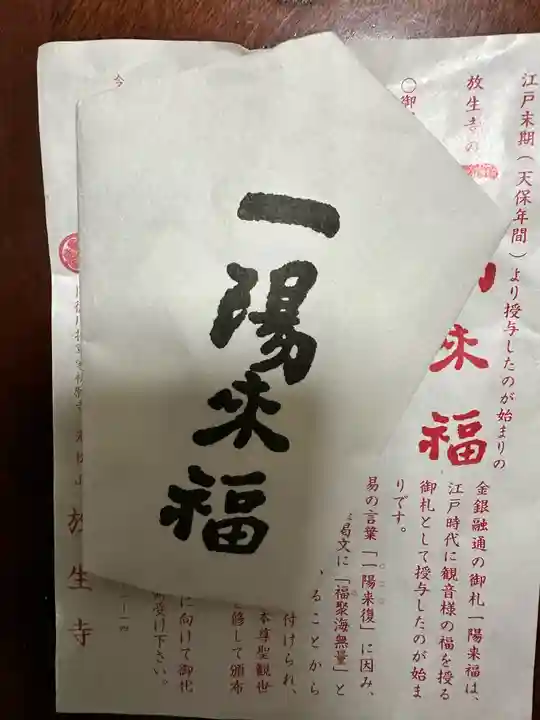 一陽来福
江戸末期(天保年間)より授与したのが始まりの
放生寺の
来福
〇御
金銀融通の御札一陽来福は、
江戸時代に観音様の福を授る
御札として授与したのが始ま
りです。
易の言葉「一陽来復」に因み、
文に「福聚海無量」と
ることから
付けられ、
本尊聖観世
修して頒布
に向けて御代
受け下さい。
今
放生寺